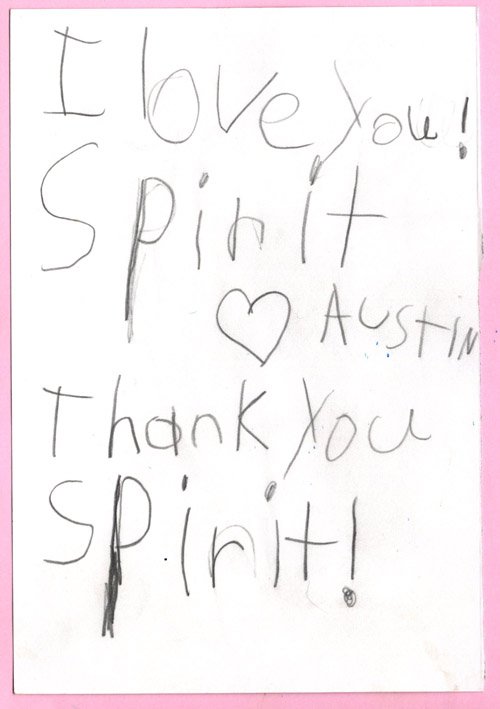 I love you!
Spirit
♡ AUSTIN
Thank you
Spirit!